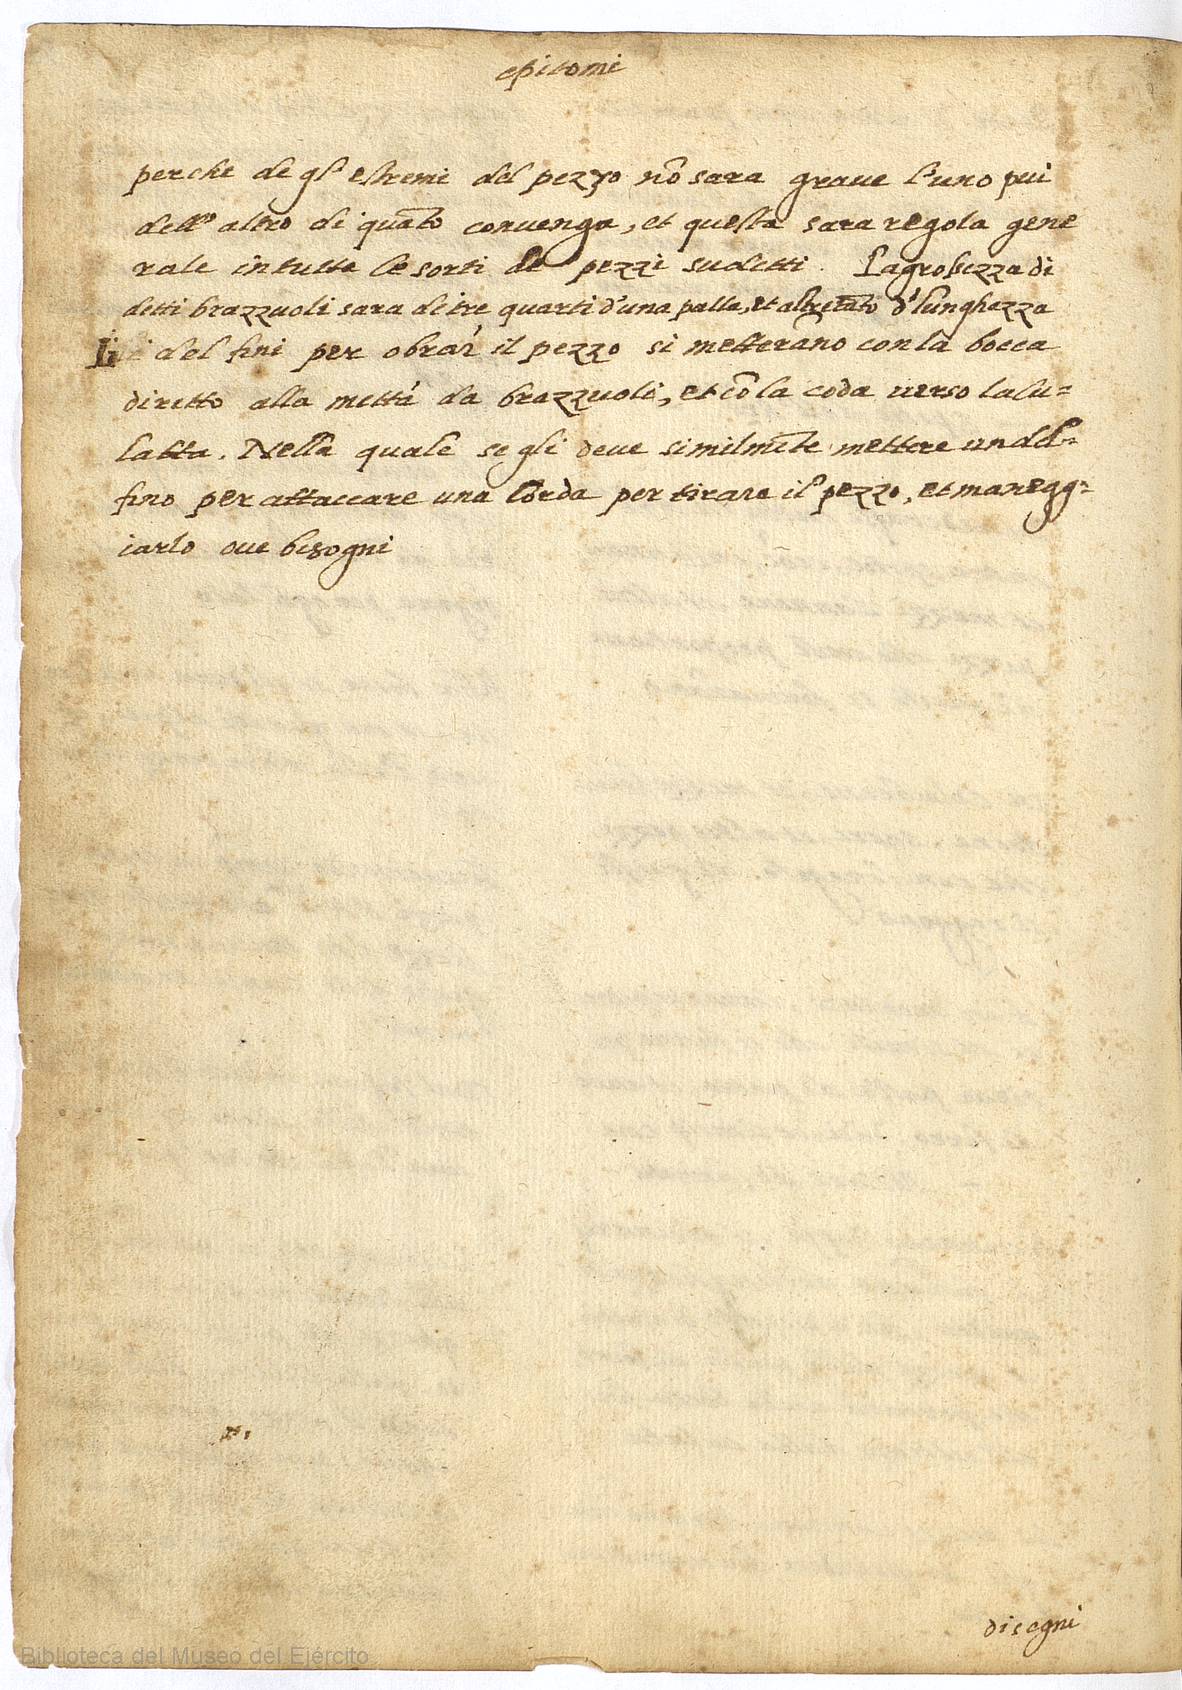 epitomi
perche de gl' estremi del pezzo nõ sara graue l'uno piu
dell' altro di quãto conuenga, et questa sara regola gene
rale in tutte le sorti de pezzi sudetti. La grossezza di
detti brazzuoli sara de tre quarti d'una palla, et altretãto d'lunghezza
Li del fini per obrar il pezzo si metterano con la bocca
diretto alla mettá da brazzuoli, et cõ la coda uerso la cu=
latta. Nella quale se gli deue similmẽte mettere un del=
fino per attaccare una corda per tirare il pezzo, et manegg=
iarlo oue bisogni
disegni
Biblioteca del Museo del Ejército